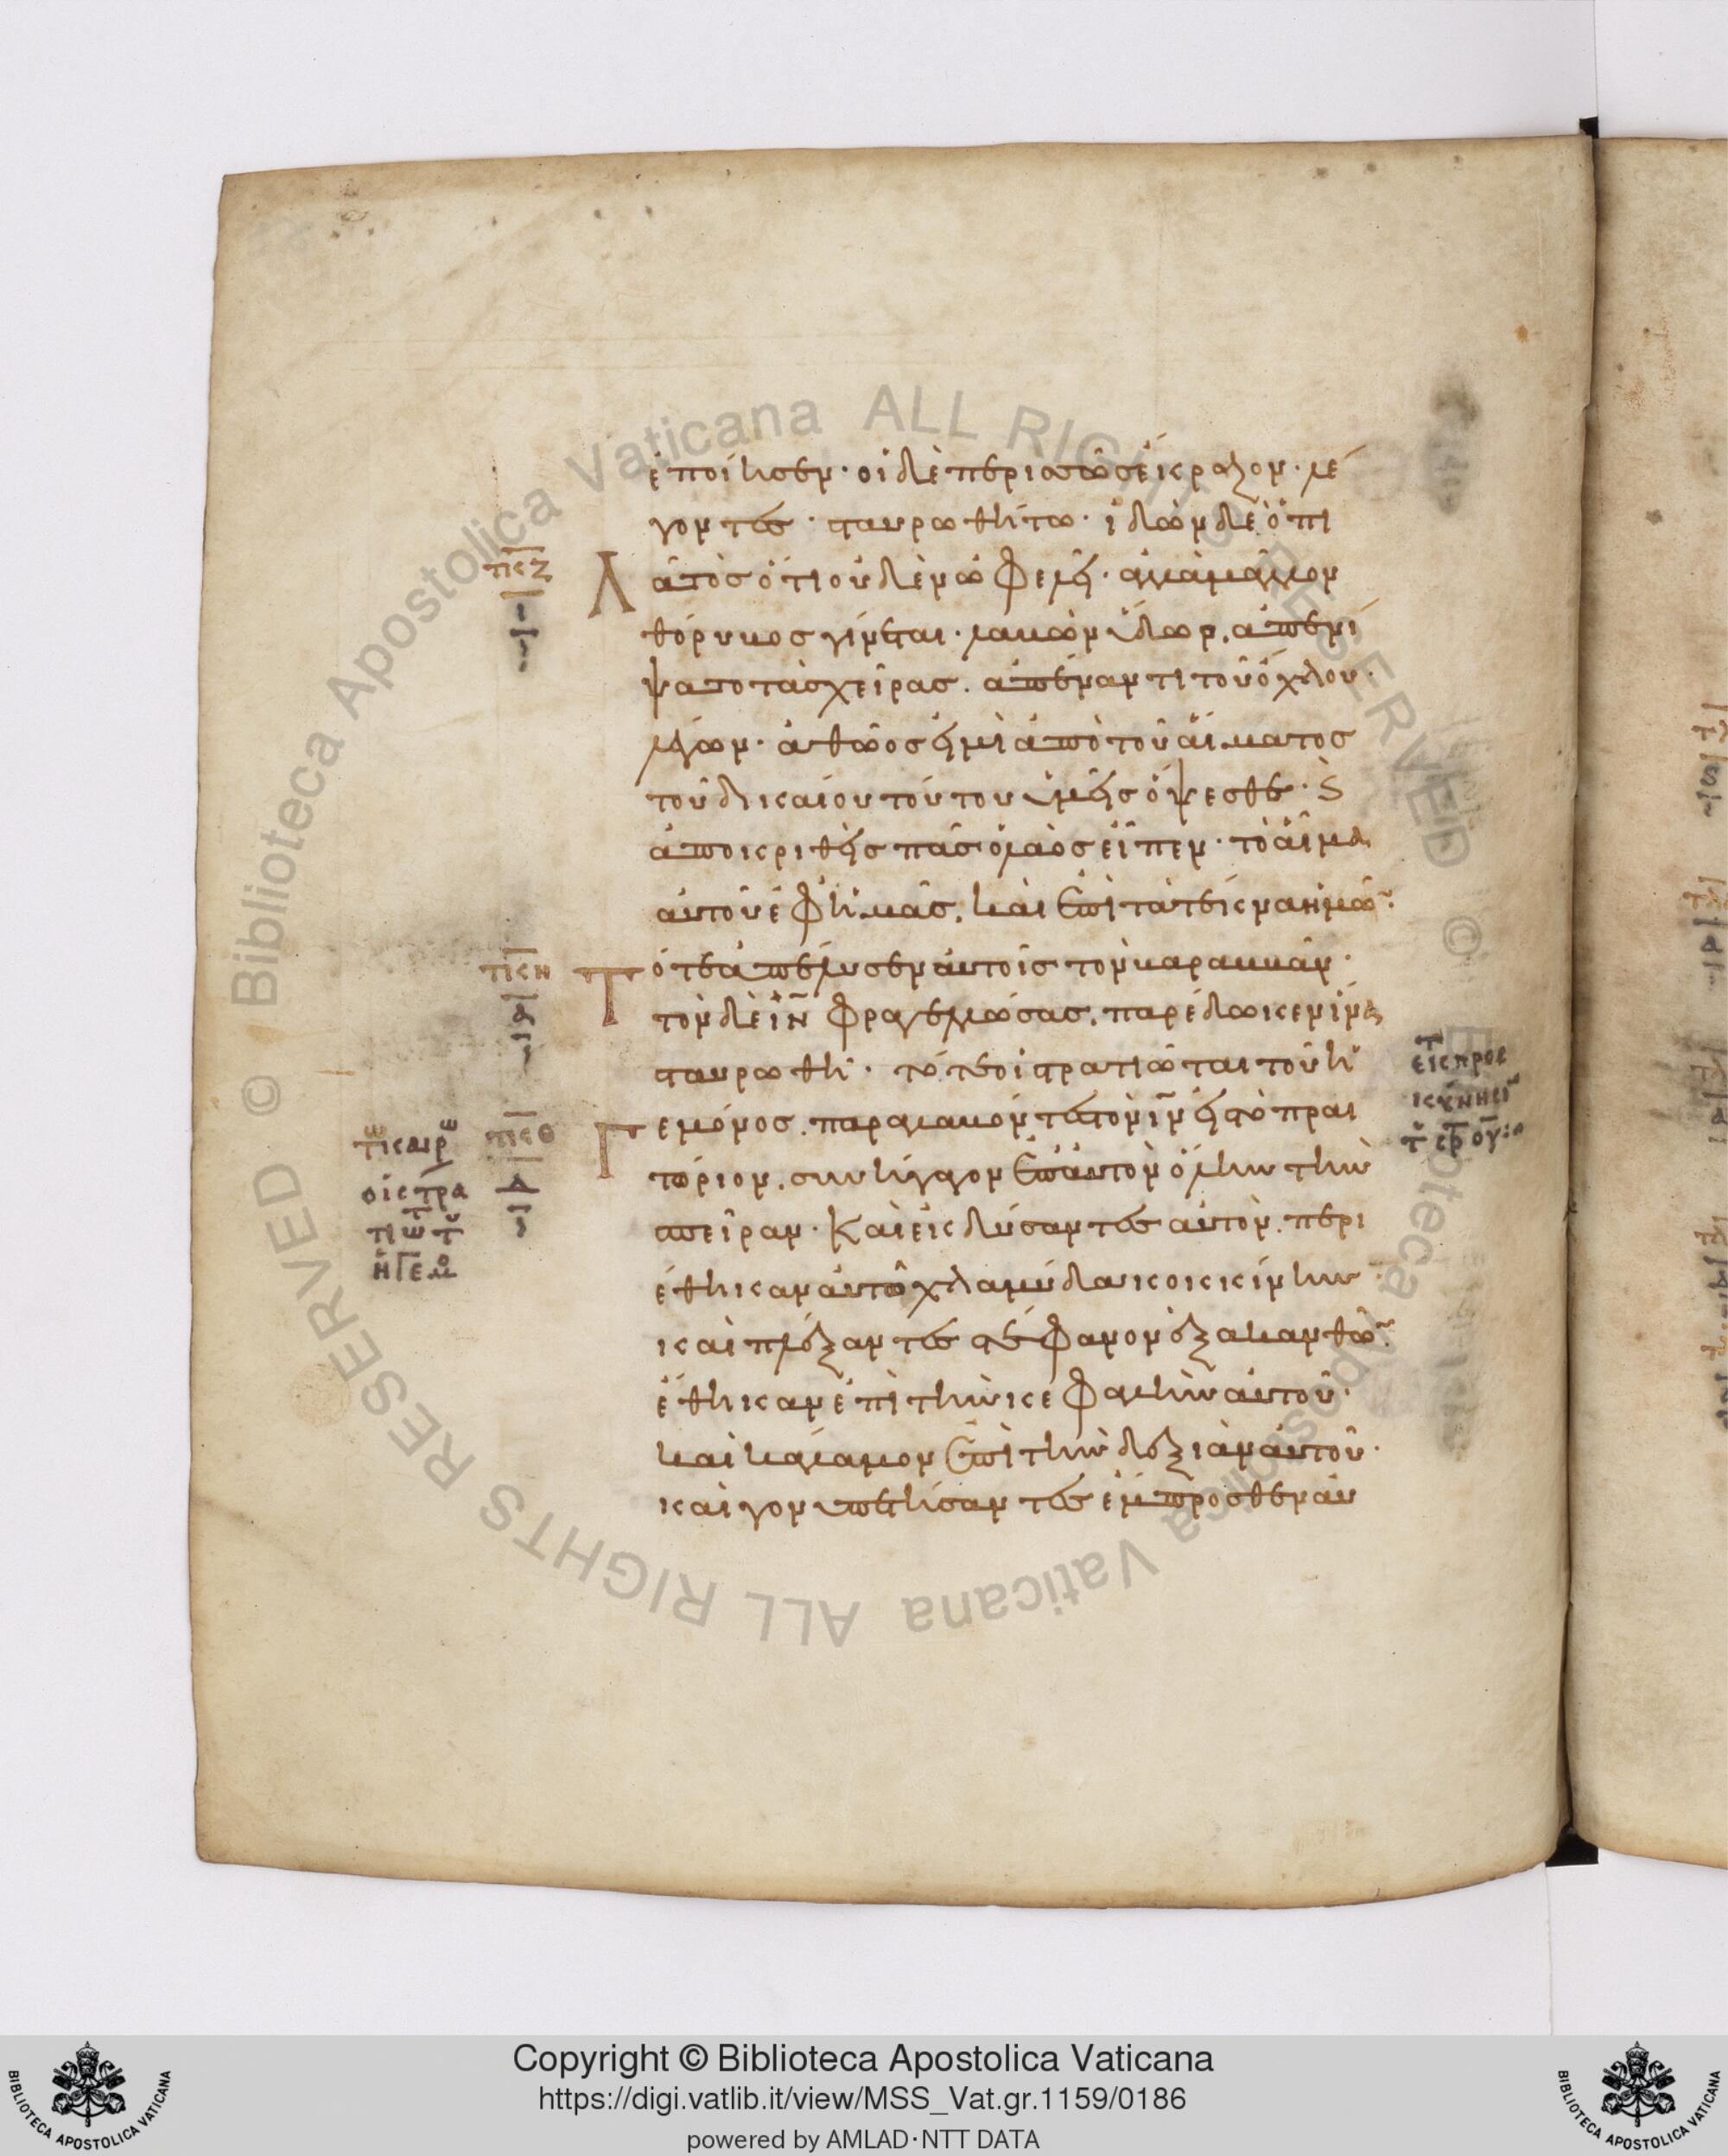 ἐποίησεν· οἱ δὲ περισσῶς ἔκραζον· λέ
γοντες· σταυρωθήτω· ἰδὼν δὲ ὁ πι
λάτος ὅτι οὐδὲν ὠφελεῖ· ἀλλὰ μᾶλλον
θόρυβος γίνεται· λαβὼν ὕδωρ, ἀπενί
ψατο τὰς χεῖρας. ἀπέναντι τοῦ ὄχλου·
λέγων· ἀθῶος εἰμὶ ἀπὸ τοῦ αἵματος
τοῦ δικαίου τούτου ὑμεῖς ὄψεσθε· ϗ
ἀποκριθεὶς πᾶς ὁ λαὸς εἶπεν· τὸ αἷμα
αὐτοῦ ἐφ' ἡμᾶς, καὶ ἐπὶ τὰ τέκνα ἡμῶ̅·
τότε ἀπέλυσεν αὐτοῖς τὸν βαραββᾶν·
τὸν δὲ ι̅ν̅ φραγελλώσας, παρέδωκεν ἵνα
σταυρωθῆ· τότε οἱ στρατιῶται τοῦ ἡ
γεμόνος. παραλαβόντες τὸν ι̅ν̅ εἰς τὸ πραι
τώριον, συνήγαγον ἐπ' αὐτὸν ὅλην τὴν
σπεῖραν· καὶ ἐκδύσαντες αὐτὸν, περι
έθηκαν αὐτῶ χλαμύδα κοκκίνην·
καὶ πλέξαντες στέφανον ἐξ ἀκανθῶ̅·
ἔθηκαν ἐπὶ τὴν κεφαλὴν αὐτοῦ·
καὶ κάλαμον ἐπὶ τὴν δεξιὰν αὐτοῦ·
καὶ γονυπετήσαντες ἔμπροσθεν αὐ
τκζ
ι
τκη
δ
ι
τκθ
δ
ι
οι στρα
τιωτ τ
ηγεμ
Copyright © Biblioteca Apostolica Vaticana
https://digi.vatlib.it/view/MSS_Vat.gr.1159/0186
powered by AMLAD·NTT DATA
BIBLIOTECA APOSTOLICA VATICANA
BIBLIOTECA APOSTOLICA VATICANA
© Biblioteca Apostolica Vaticana ALL RIGHTS RESERVED
© Biblioteca Apostolica Vaticana ALL RIGHTS RESERVED